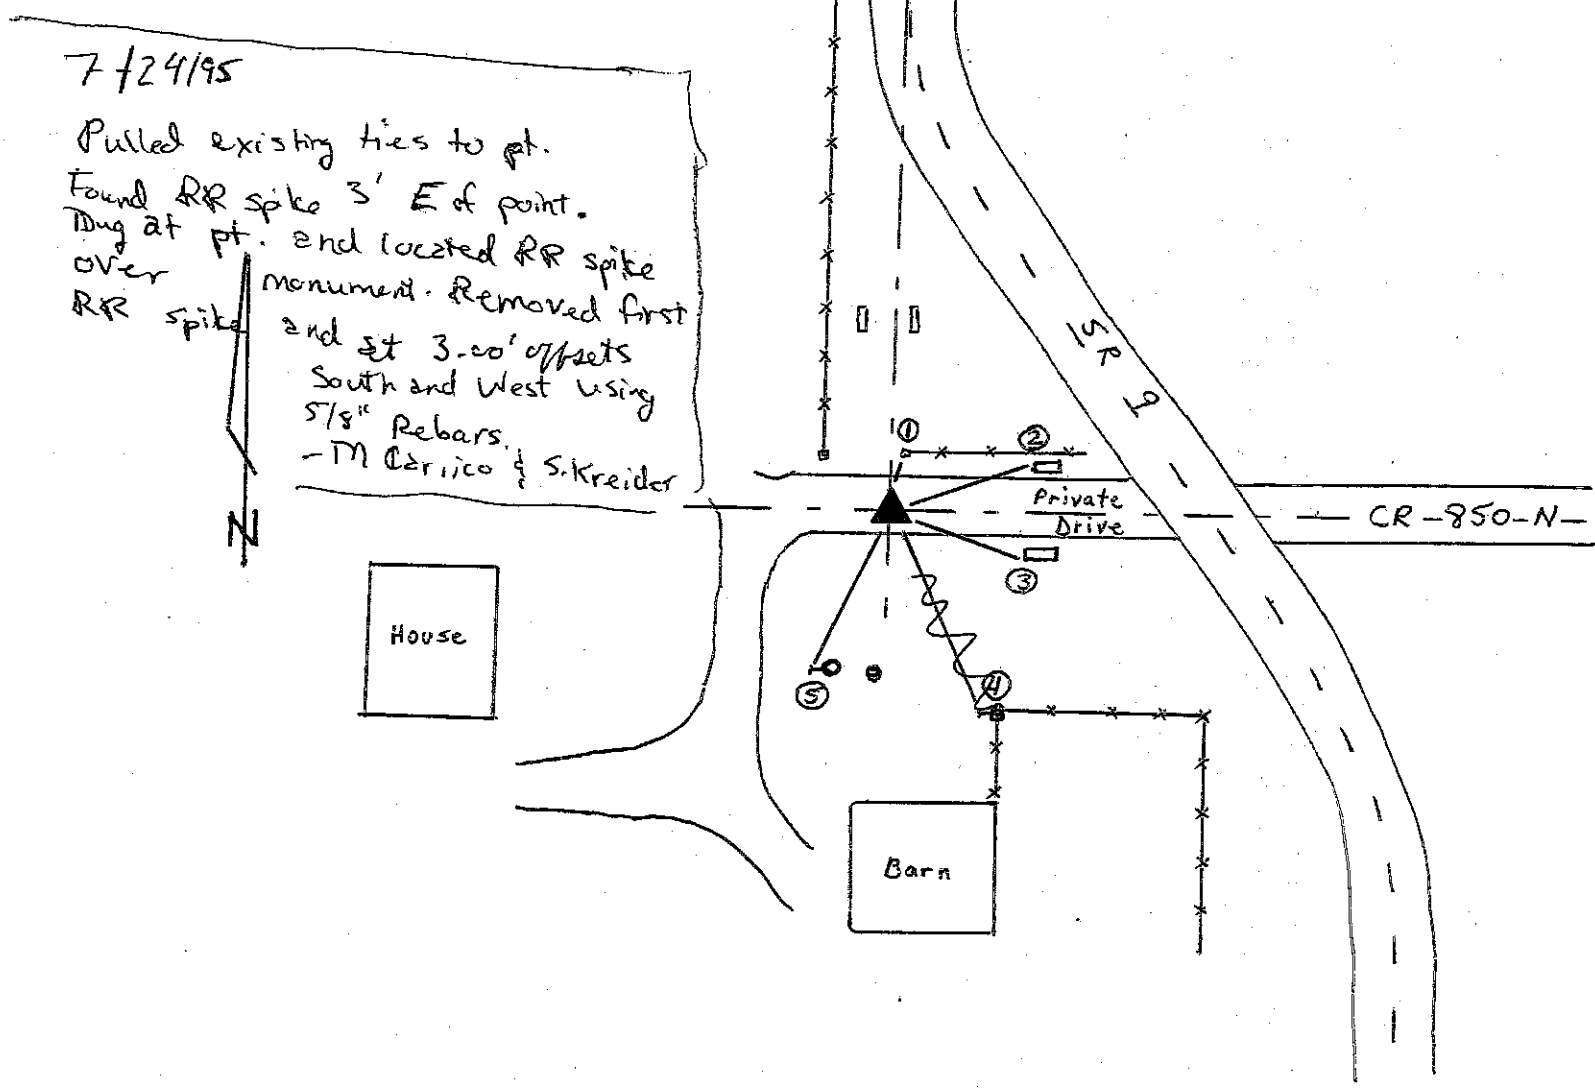 7/24/95
Pulled existing ties to pt.
Found RR spike 3' E of point.
Dug at pt. and located RR spike
over monument. Removed first
RR spike and set 3.00' offsets
South and West using
5/8" Rebars.
- M Carrico & S. Kreider
N
SR 9
①
②
Private
Drive
CR-850-N
③
House
④
⑤
Barn